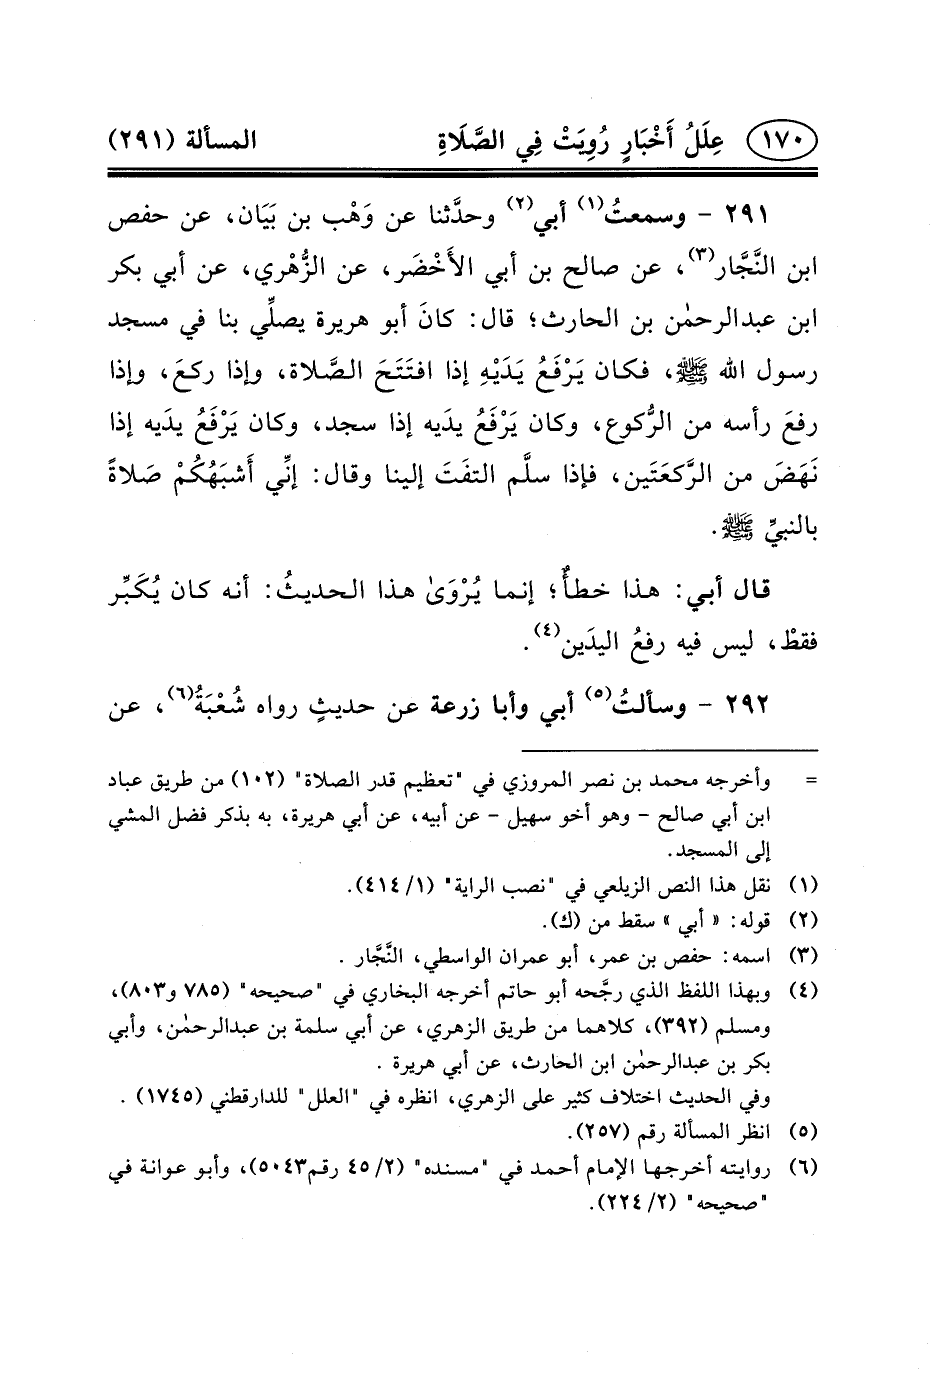 ١٧٠ عِلَلُ أَخْبَارٍ رُوِيَتْ فِي الصَّلَاةِ المسألة (٢٩١)
٢٩١ - وسمعتُ(١) أبي(٢) وحدَّثنا عن وَهْب بن بَيَان، عن حفص
ابن النَّجَّار(٣)، عن صالح بن أبي الأَخْضَر، عن الزُّهْري، عن أبي بكر
ابن عبدالرحمٰن بن الحارث؛ قال: كانَ أبو هريرة يصلِّي بنا في مسجد
رسول الله ﷺ، فكان يَرْفَعُ يَدَيْهِ إذا افتَتَحَ الصَّلاة، وإذا ركعَ، وإذا
رفعَ رأسه من الرُّكوع، وكان يَرْفَعُ يدَيه إذا سجد، وكان يَرْفَعُ يدَيه إذا
نَهَضَ من الرَّكعَتَين، فإذا سلَّم التفَتَ إلينا وقال: إنِّي أَشبَهُكُمْ صَلاةً
بالنبيِّ ﷺ.
قال أبي: هذا خطأٌ؛ إنما يُرْوَىٰ هذا الحديثُ: أنه كان يُكَبِّر
فقطْ، ليس فيه رفعُ اليدَين(٤).
٢٩٢ - وسألتُ(٥) أبي وأبا زرعة عن حديثٍ رواه شُعْبَةُ(٦)، عن
= وأخرجه محمد بن نصر المروزي في "تعظيم قدر الصلاة" (١٠٢) من طريق عباد
ابن أبي صالح - وهو أخو سهيل - عن أبيه، عن أبي هريرة، به بذكر فضل المشي
إلى المسجد.
(١) نقل هذا النص الزيلعي في "نصب الراية" (١/ ٤١٤).
(٢) قوله: « أبي » سقط من (ك).
(٣) اسمه: حفص بن عمر، أبو عمران الواسطي، النَّجَّار .
(٤) وبهذا اللفظ الذي رجَّحه أبو حاتم أخرجه البخاري في "صحيحه" (٧٨٥ و٨٠٣)،
ومسلم (٣٩٢)، كلاهما من طريق الزهري، عن أبي سلمة بن عبدالرحمٰن، وأبي
بكر بن عبدالرحمٰن ابن الحارث، عن أبي هريرة .
وفي الحديث اختلاف كثير على الزهري، انظره في "العلل" للدارقطني (١٧٤٥) .
(٥) انظر المسألة رقم (٢٥٧).
(٦) روايته أخرجها الإمام أحمد في "مسنده" (٢/ ٤٥ رقم٥٠٤٣)، وأبو عوانة في
"صحيحه" (٢/ ٢٢٤).